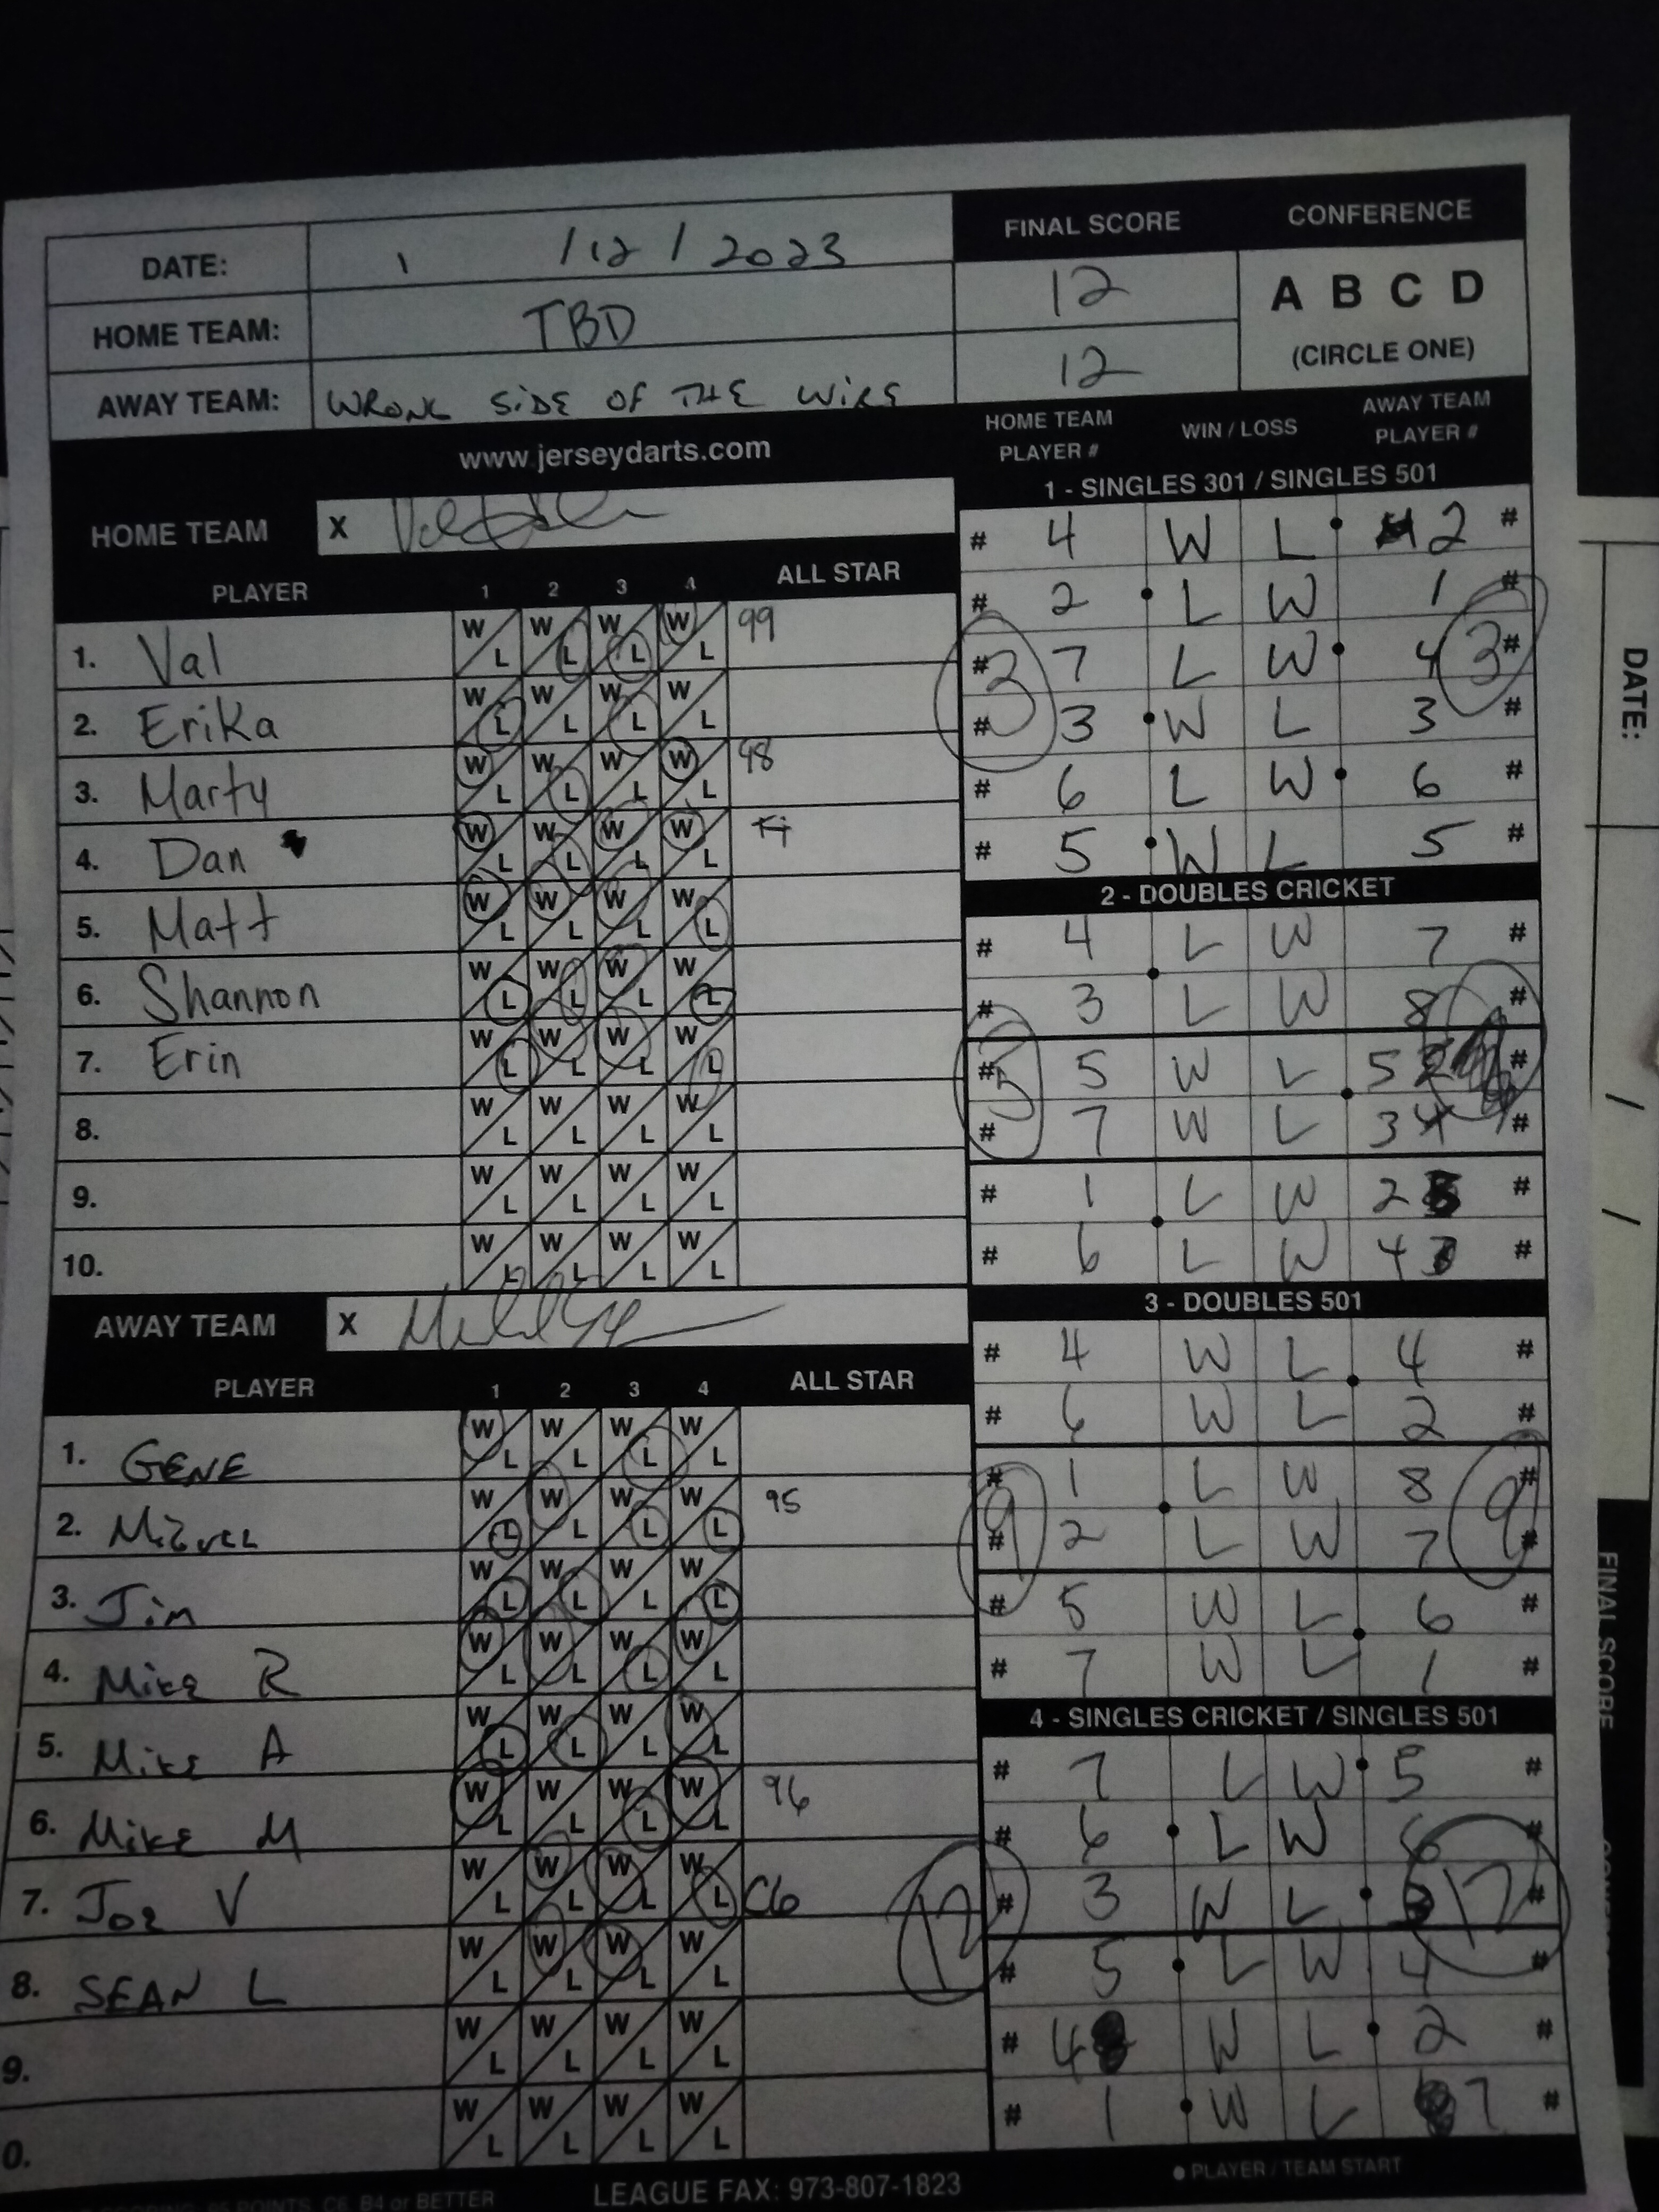 DATE: 1 /12/2023
HOME TEAM: TBD
AWAY TEAM: WRONG SIDE OF THE WIRE
FINAL SCORE
12
12
CONFERENCE
A B C D
(CIRCLE ONE)
www.jerseydarts.com
HOME TEAM X
PLAYER 1 2 3 4 ALL STAR
1. Val W L W L W L W L 99
2. Erika W L W L W L W L
3. Marty W L W L W L W L 98
4. Dan W L W L W L W L
5. Matt W L W L W L W L
6. Shannon W L W L W L W L
7. Erin W L W L W L W L
8. W L W L W L W L
9. W L W L W L W L
10. W L W L W L W L
AWAY TEAM X
PLAYER 1 2 3 4 ALL STAR
1. GENE W L W L W L W L
2. W L W L W L W L 95
3. Jim W L W L W L W L
4. Mike R W L W L W L W L
5. Mike A W L W L W L W L
6. Mike M W L W L W L W L 96
7. Joe V W L W L W L W L C6
8. SEAN L W L W L W L W L
9. W L W L W L W L
0. W L W L W L W L
HOME TEAM PLAYER # WIN / LOSS AWAY TEAM PLAYER #
1 - SINGLES 301 / SINGLES 501
# 4 W L 2 #
# 2 L W 1 #
# 7 L W 4 #
# 3 W L 3 #
# 6 L W 6 #
# 5 W L 5 #
3 3
2 - DOUBLES CRICKET
# 4 L W 7 #
# 3 L W 8 #
# 5 W L 5 #
# 7 W L 3 #
# 1 L W 2 #
# 6 L W 4 #
5
3 - DOUBLES 501
# 4 W L 4 #
# 6 W L 2 #
# 1 L W 8 #
# 2 L W 7 #
# 5 W L 6 #
# 7 W L 1 #
9 9
4 - SINGLES CRICKET / SINGLES 501
# 7 L W 5 #
# 6 L W 6 #
# 3 W L #
# 5 L W 4 #
# 4 W L 2 #
# 1 W L 7 #
12 12
POINTS, C6, B4 or BETTER
LEAGUE FAX: 973-807-1823
● PLAYER / TEAM START
DATE:
/ /
FINAL SCORE